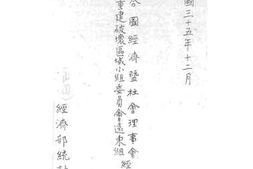 國三十五年十二月
合國經濟暨社會理事會
重建破壞區域小組委員會遠東組
經
經濟部統計